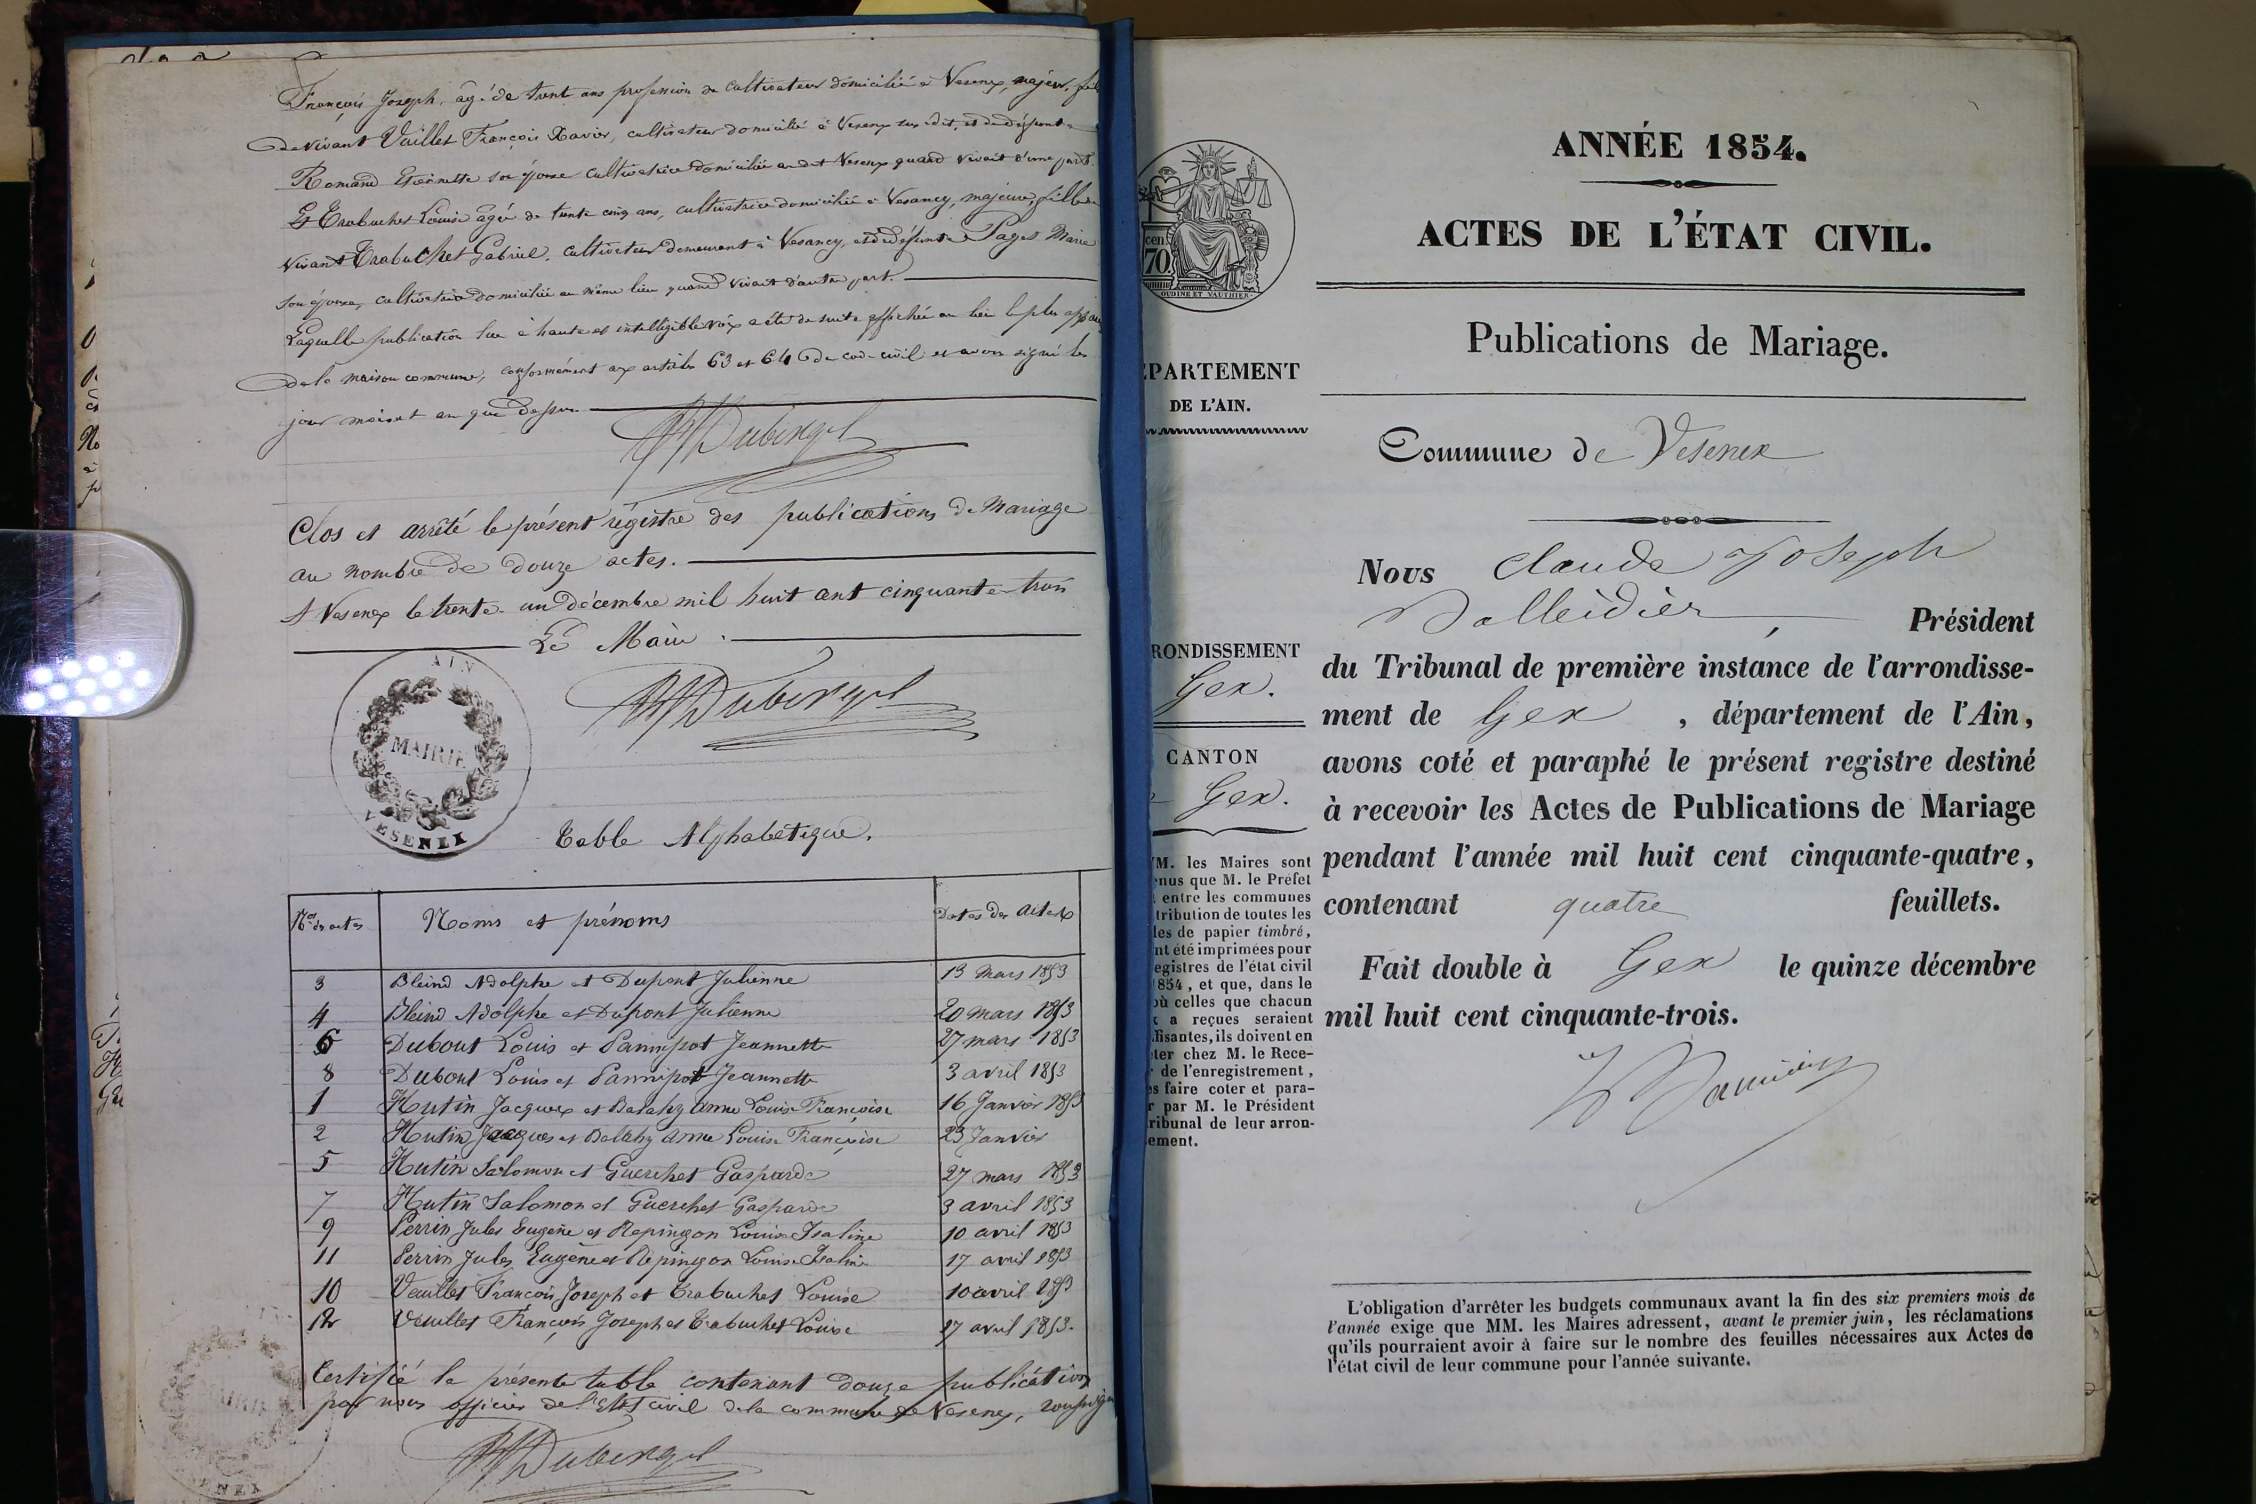 François Joseph, agé de trent ans profession de cultivateur domicilié à Vesenex, majeur, fils
de vivant Vuillet François Xavier, cultivateur domicilié à Vesenex susdit, et de défunte
Romand Etiennette son épouse cultivatrice domiciliée au dit Vesenex quand vivait d'une part.
Et Trabuchet Louise agée de trente cinq ans, cultivatrice domiciliée à Vesancy, majeure, fille de
vivant Trabuchet Gabriel, cultivateur demeurant à Vesancy, et de défunte Pages Marie
son épouse, cultivatrice domiciliée au même lieu quand vivait d'autre part.
Laquelle publication lue à haute et intelligible voix a été de suite affichée au lieu le plus
de la maison commune, conformément aux articles 63 et 64 de code civil et avons signé les
jour mois et an que dessus
Dubengel
Clos et arrêté le présent régistre des publications de Mariage
au nombre de douze actes.
A Vesenex le trente-un décembre mil huit cent cinquante-trois
Le Maire.
AIN
MAIRIE
VESENEX
Dubengel
Table Alphabétique.
Nos des actes
Noms et prénoms
Dates des actes
3 Bleind Adolphe et Dupont Julienne 13 mars 1853
4 Bleind Adolphe et Dupont Julienne 20 mars 1853
6 Dubout Louis et Pannipot Jeannette 27 mars 1853
8 Dubout Louis et Pannipot Jeannette 3 avril 1853
1 Hutin Jacques et Anne Louise Françoise 16 Janvier 1853
2 Hutin Jacques et Anne Louise Françoise 23 Janvier
5 Hutin Salomon et Guerchet Gasparde 27 mars 1853
7 Hutin Salomon et Guerchet Gasparde 3 avril 1853
9 Perrin Jules Eugène et Repingon Louise Isaline 10 avril 1853
11 Perrin Jules Eugène et Repingon Louise Isaline 17 avril 1853
10 Vuillet François Joseph et Trabuchet Louise 10 avril 1853
12 Vuillet François Joseph et Trabuchet Louise 17 avril 1853.
Certifié la présente table contenant douze publication
par nous officier de l'Etat civil de la commune de Vesenex,
Dubengel
OUDINÉ ET VAUTHIER
cen
70.
ANNÉE 1854.
ACTES DE L'ÉTAT CIVIL.
Publications de Mariage.
Commune de Vesenex
Nous Claude Joseph
Président
du Tribunal de première instance de l'arrondisse-
ment de Gex, département de l'Ain,
avons coté et paraphé le présent registre destiné
à recevoir les Actes de Publications de Mariage
pendant l'année mil huit cent cinquante-quatre,
contenant quatre feuillets.
Fait double à Gex le quinze décembre
mil huit cent cinquante-trois.
L'obligation d'arrêter les budgets communaux avant la fin des six premiers mois de
l'année exige que MM. les Maires adressent, avant le premier juin, les réclamations
qu'ils pourraient avoir à faire sur le nombre des feuilles nécessaires aux Actes de
l'état civil de leur commune pour l'année suivante.
PARTEMENT
DE L'AIN.
RONDISSEMENT
Gex.
CANTON
Gex.
M. les Maires sont
enus que M. le Préfet
entre les communes
tribution de toutes les
les de papier timbré,
nt été imprimées pour
egistres de l'état civil
854, et que, dans le
où celles que chacun
x a reçues seraient
fisantes, ils doivent en
ter chez M. le Rece-
r de l'enregistrement,
es faire coter et para-
r par M. le Président
ribunal de leur arron-
ement.